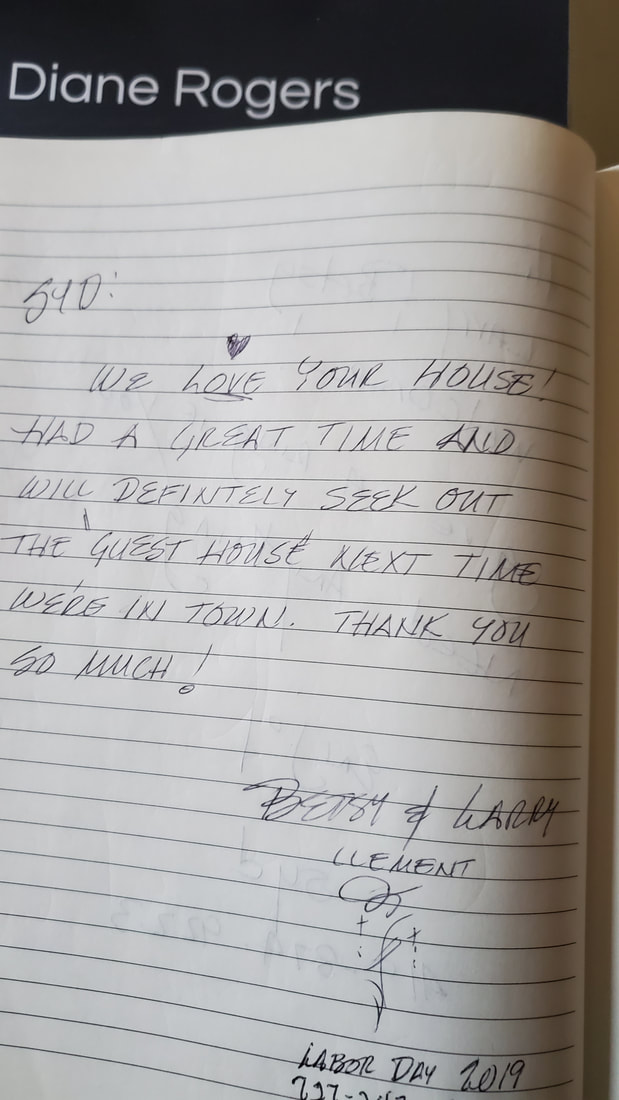 Diane Rogers
SYD:
WE LOVE YOUR HOUSE!
HAD A GREAT TIME AND
WILL DEFINTELY SEEK OUT
THE 'GUEST HOUSE' NEXT TIME
WE'RE IN TOWN. THANK YOU
SO MUCH!
BETSY & LARRY
CLEMENT
LABOR DAY 2019